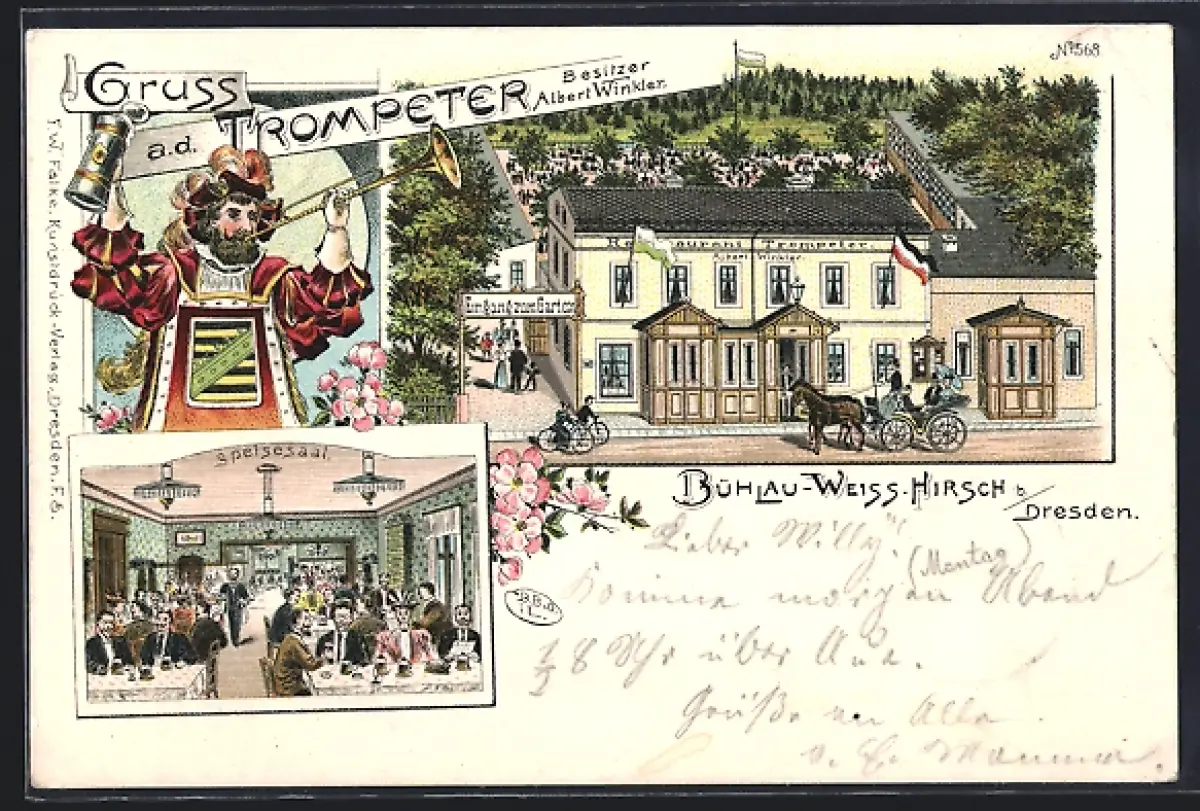 Gruss
a.d. TROMPETER
Besitzer
Albert Winkler.
No 568
Restaurant Trompeter.
Albert Winkler
Eingang zum Garten
F.W. Falke, Kunstdruck-Verlag, Dresden, F. 8.
Speisesaal
BÜHLAU-WEISS-HIRSCH b/
Dresden.
Lieber Willy!
Komme morgen (Montag) Abend
1/2 8 Uhr über Aue.
Grüße an Alle
Mamma.